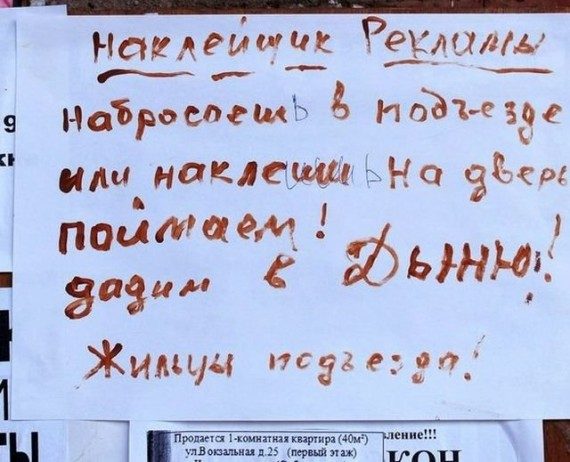 Наклейщик Рекламы
Набросаешь в подъезде
или наклеишь на дверь
поймаем!
дадим в Дыню!
Жильцы подъезда!
Продается 1-комнатная квартира (40м²)
ул.Вокзальная д.25 (первый этаж)
ление!!!
КОН